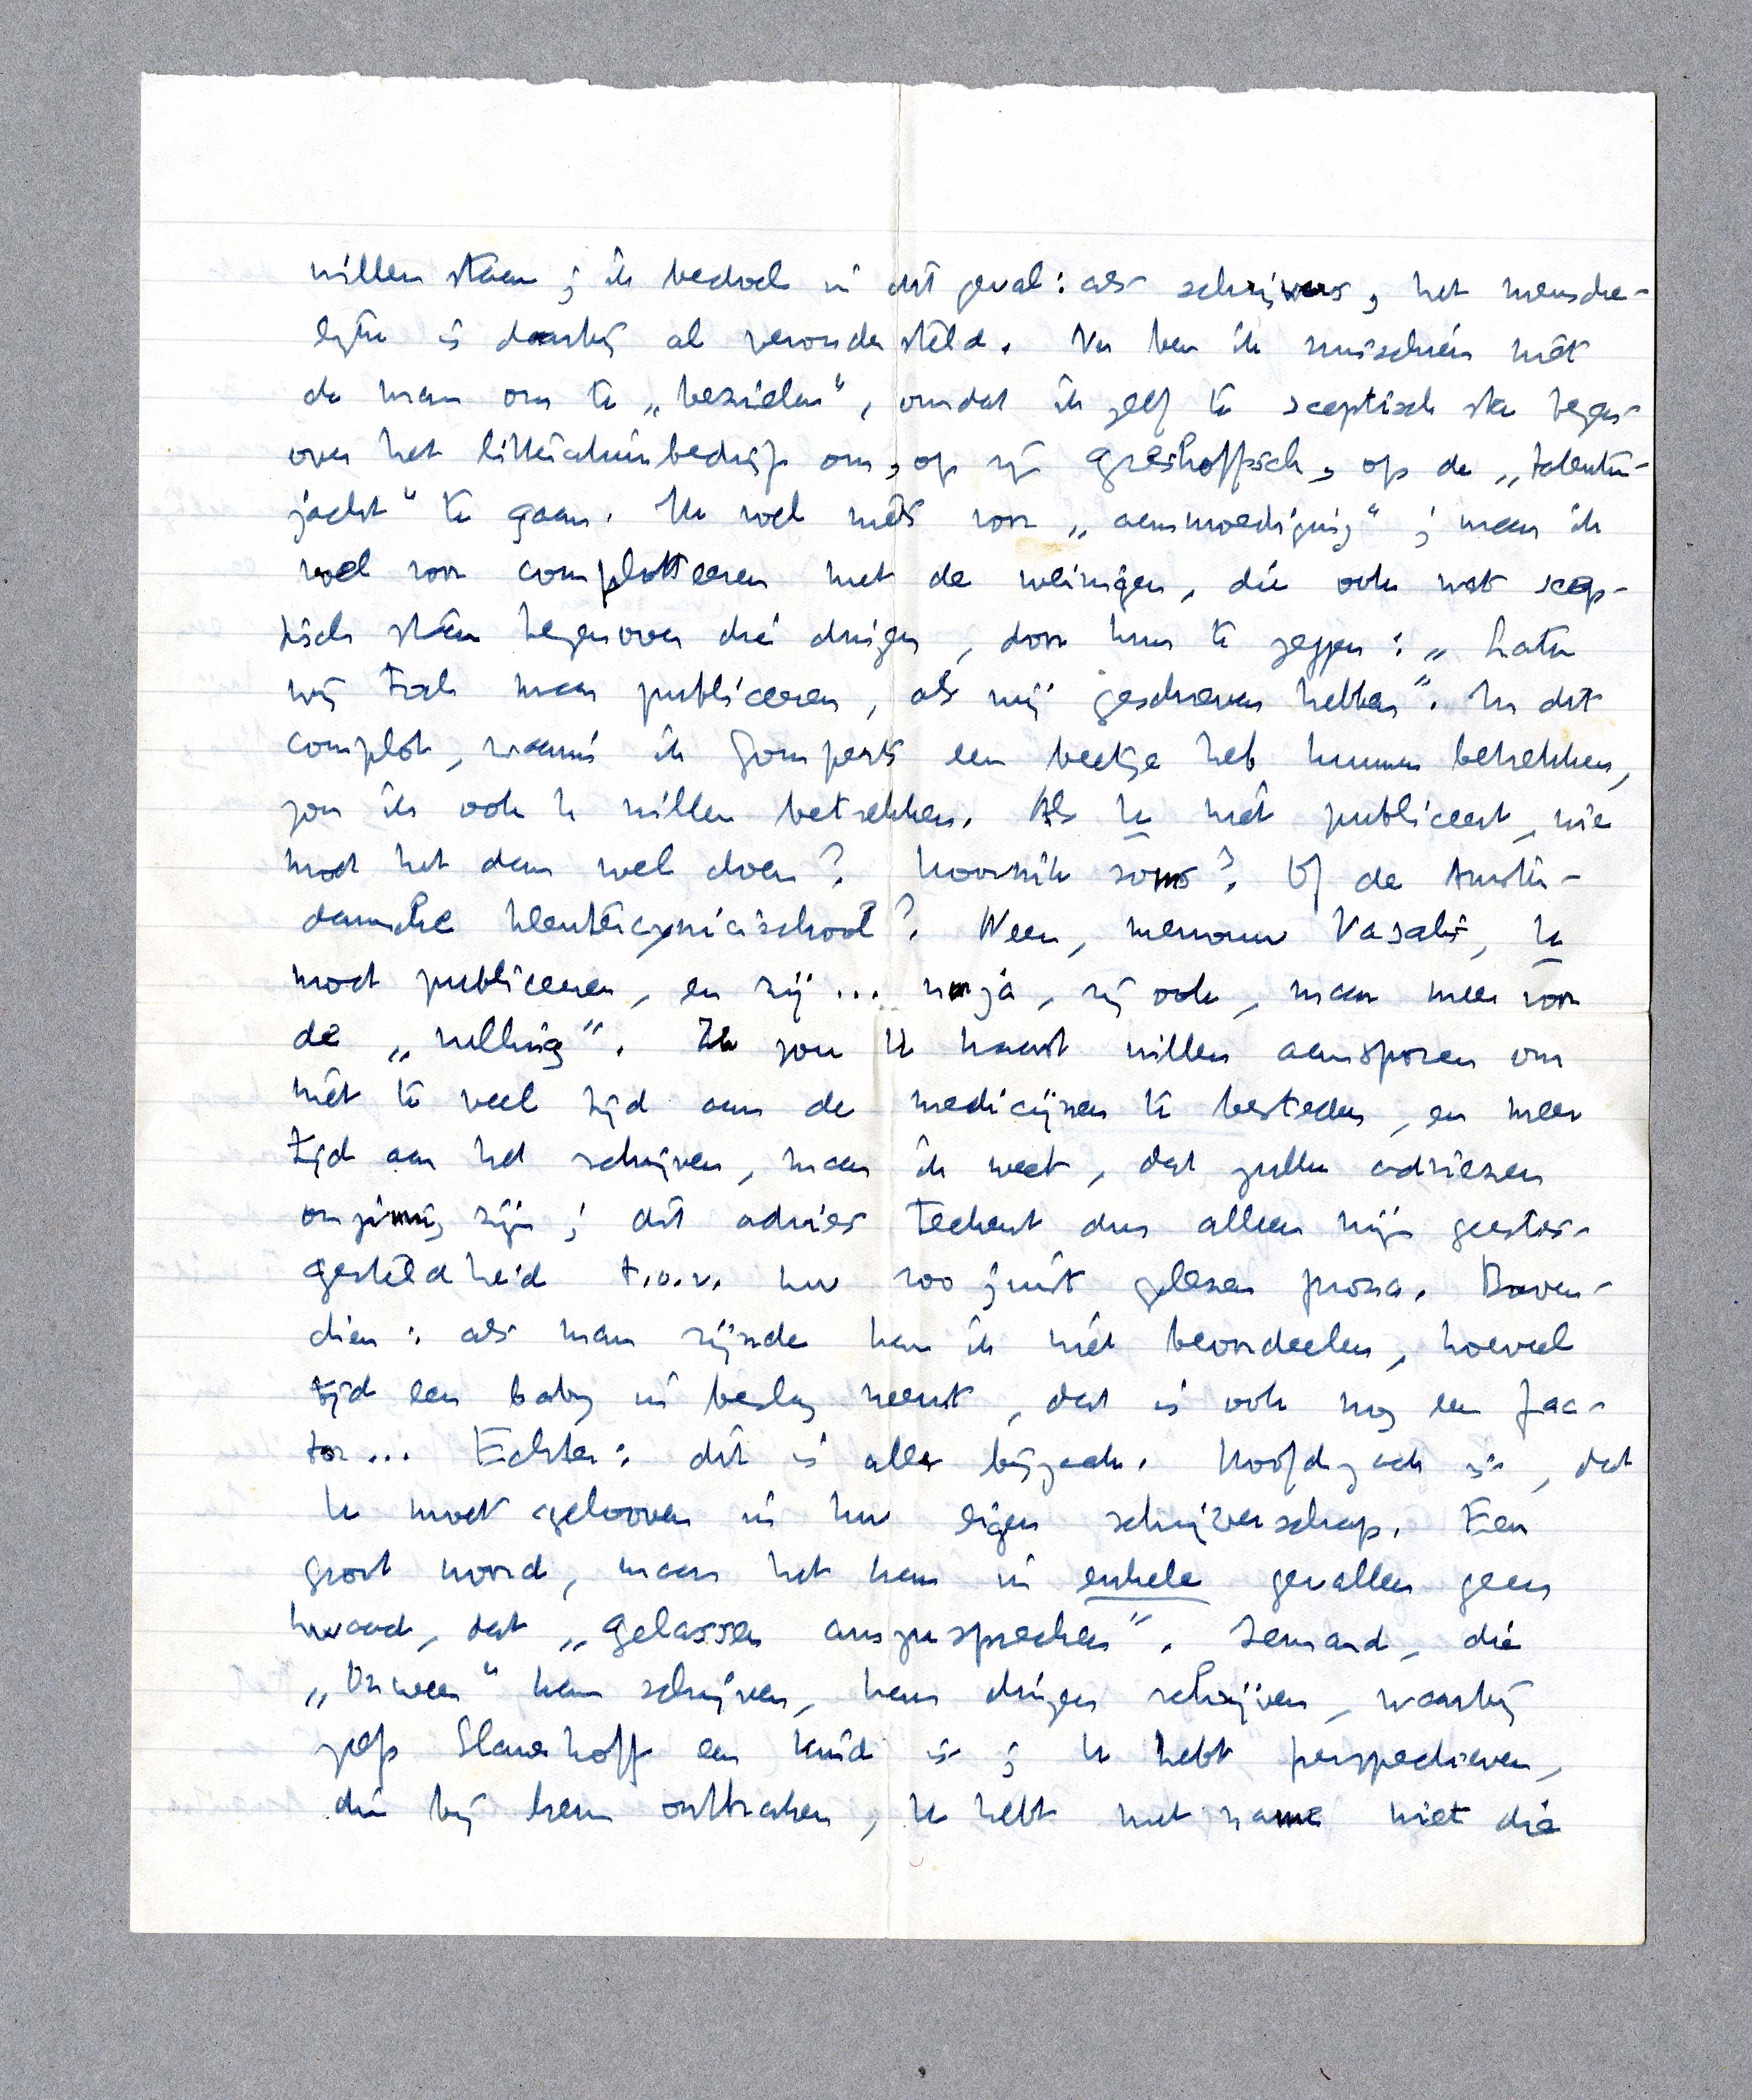 willen staan; ik bedoel in dit geval: als schrijvers, het mensche-
lijke is daarbij al verondersteld. Nu ben ik misschien niet
de man om te „bezielen”, omdat ik zelf te sceptisch sta tegen-
over het litteratuurbedrijf om, op zijn Greshoffsch, op de „talenten-
jacht” te gaan. Ik voel niets voor „aanmoediging”; maar ik
voel voor complotteeren met de weinigen, die ook wat scep-
tisch staan tegenover die dingen, door hun te zeggen: „Laten
wij toch maar publiceeren, als wij geschreven hebben”. In dit
complot, waarin ik Gomperts een beetje heb kunnen betrekken,
zou ik ook U willen betrekken. Als U niet publiceert, wie
moet het dan wel doen? Hoornik soms? Of de Amster-
damsche kleutercynicischool? Neen, mevrouw Vasalis, U
moet publiceeren, en zij... nu ja, zij ook, maar meer voor
de „vulling”. Ik zou U haast willen aansporen om
niet te veel tijd aan de medicijnen te besteden, en meer
tijd aan het schrijven, maar ik weet, dat zulke adviezen
onzinnig zijn; dit advies teekent dus alleen mijn geestes-
gesteldheid t.o.v. Uw zoo juist gelezen proza. Boven-
dien: als man zijnde kan ik niet beoordeelen, hoeveel
tijd een baby in beslag neemt, dat is ook nog een fac-
tor... Echter: dit is alles bijzaak. Hoofdzaak is, dat
U moet gelooven in Uw eigen schrijverschap. Een
groot woord, maar het kan in enkele gevallen geen
kwaad, dat „gelassen auszusprechen”. Iemand, die
„Onweer” kan schrijven, kan dingen schrijven, waarbij
zelfs Slauerhoff een kind is; U hebt perspectieven,
die bij hem ontbraken, U hebt met name niet die